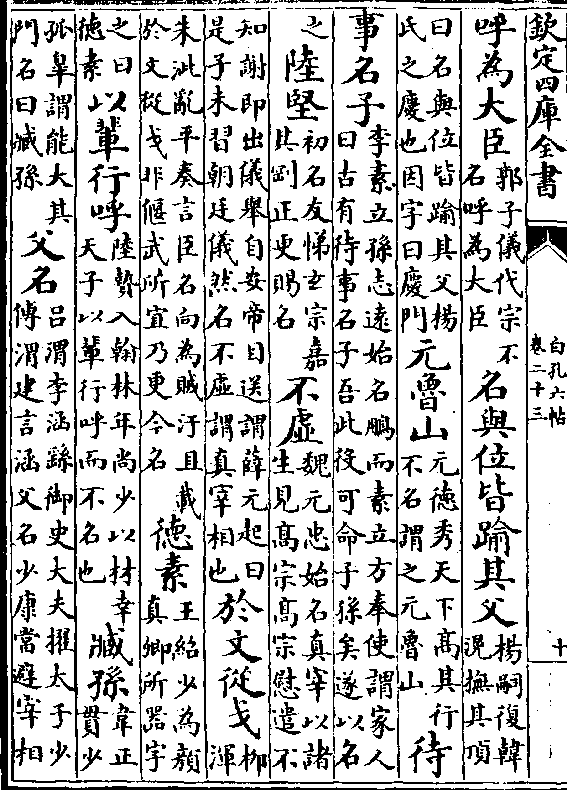 欽定四庫全書
呼為大臣
郭子儀代宗不
名呼為大臣
名與位皆踰其父
楊嗣復韓
滉撫其頂
曰名與位皆踰其父楊
氏之慶也因字曰慶門
元魯山
元德秀天下髙其行
不名謂之元魯山
待
事名子
李素立孫志遠始名鵬而素立方奉使謂家人
曰古有待事名子吾此役可命子孫矣遂以名
之
陸堅
初名友悌玄宗嘉
其剛正更賜名
不虛
魏元忠始名真宰以諸
生見髙宗髙宗慰遣不
知謝即出儀舉自安帝目送謂薛元超曰
是子未習朝廷儀然名不虛謂真宰相也
於文從戈
柳
渾
朱泚亂平奏言臣名向為賊汙且載
於文從戈非偃武所宜乃更今名
德素
王紹少為顔
真卿所器字
之曰
德素
以輩行呼
陸贄入翰林年尚少以材幸
天子以輩行呼而不名也
臧孫
韋正
貫少
孤臯謂能大其
門名曰臧孫
父名
吕渭李涵繇御史大夫擢太子少
傅渭建言涵父名少康當避宰相
白孔六帖
卷二十三
十